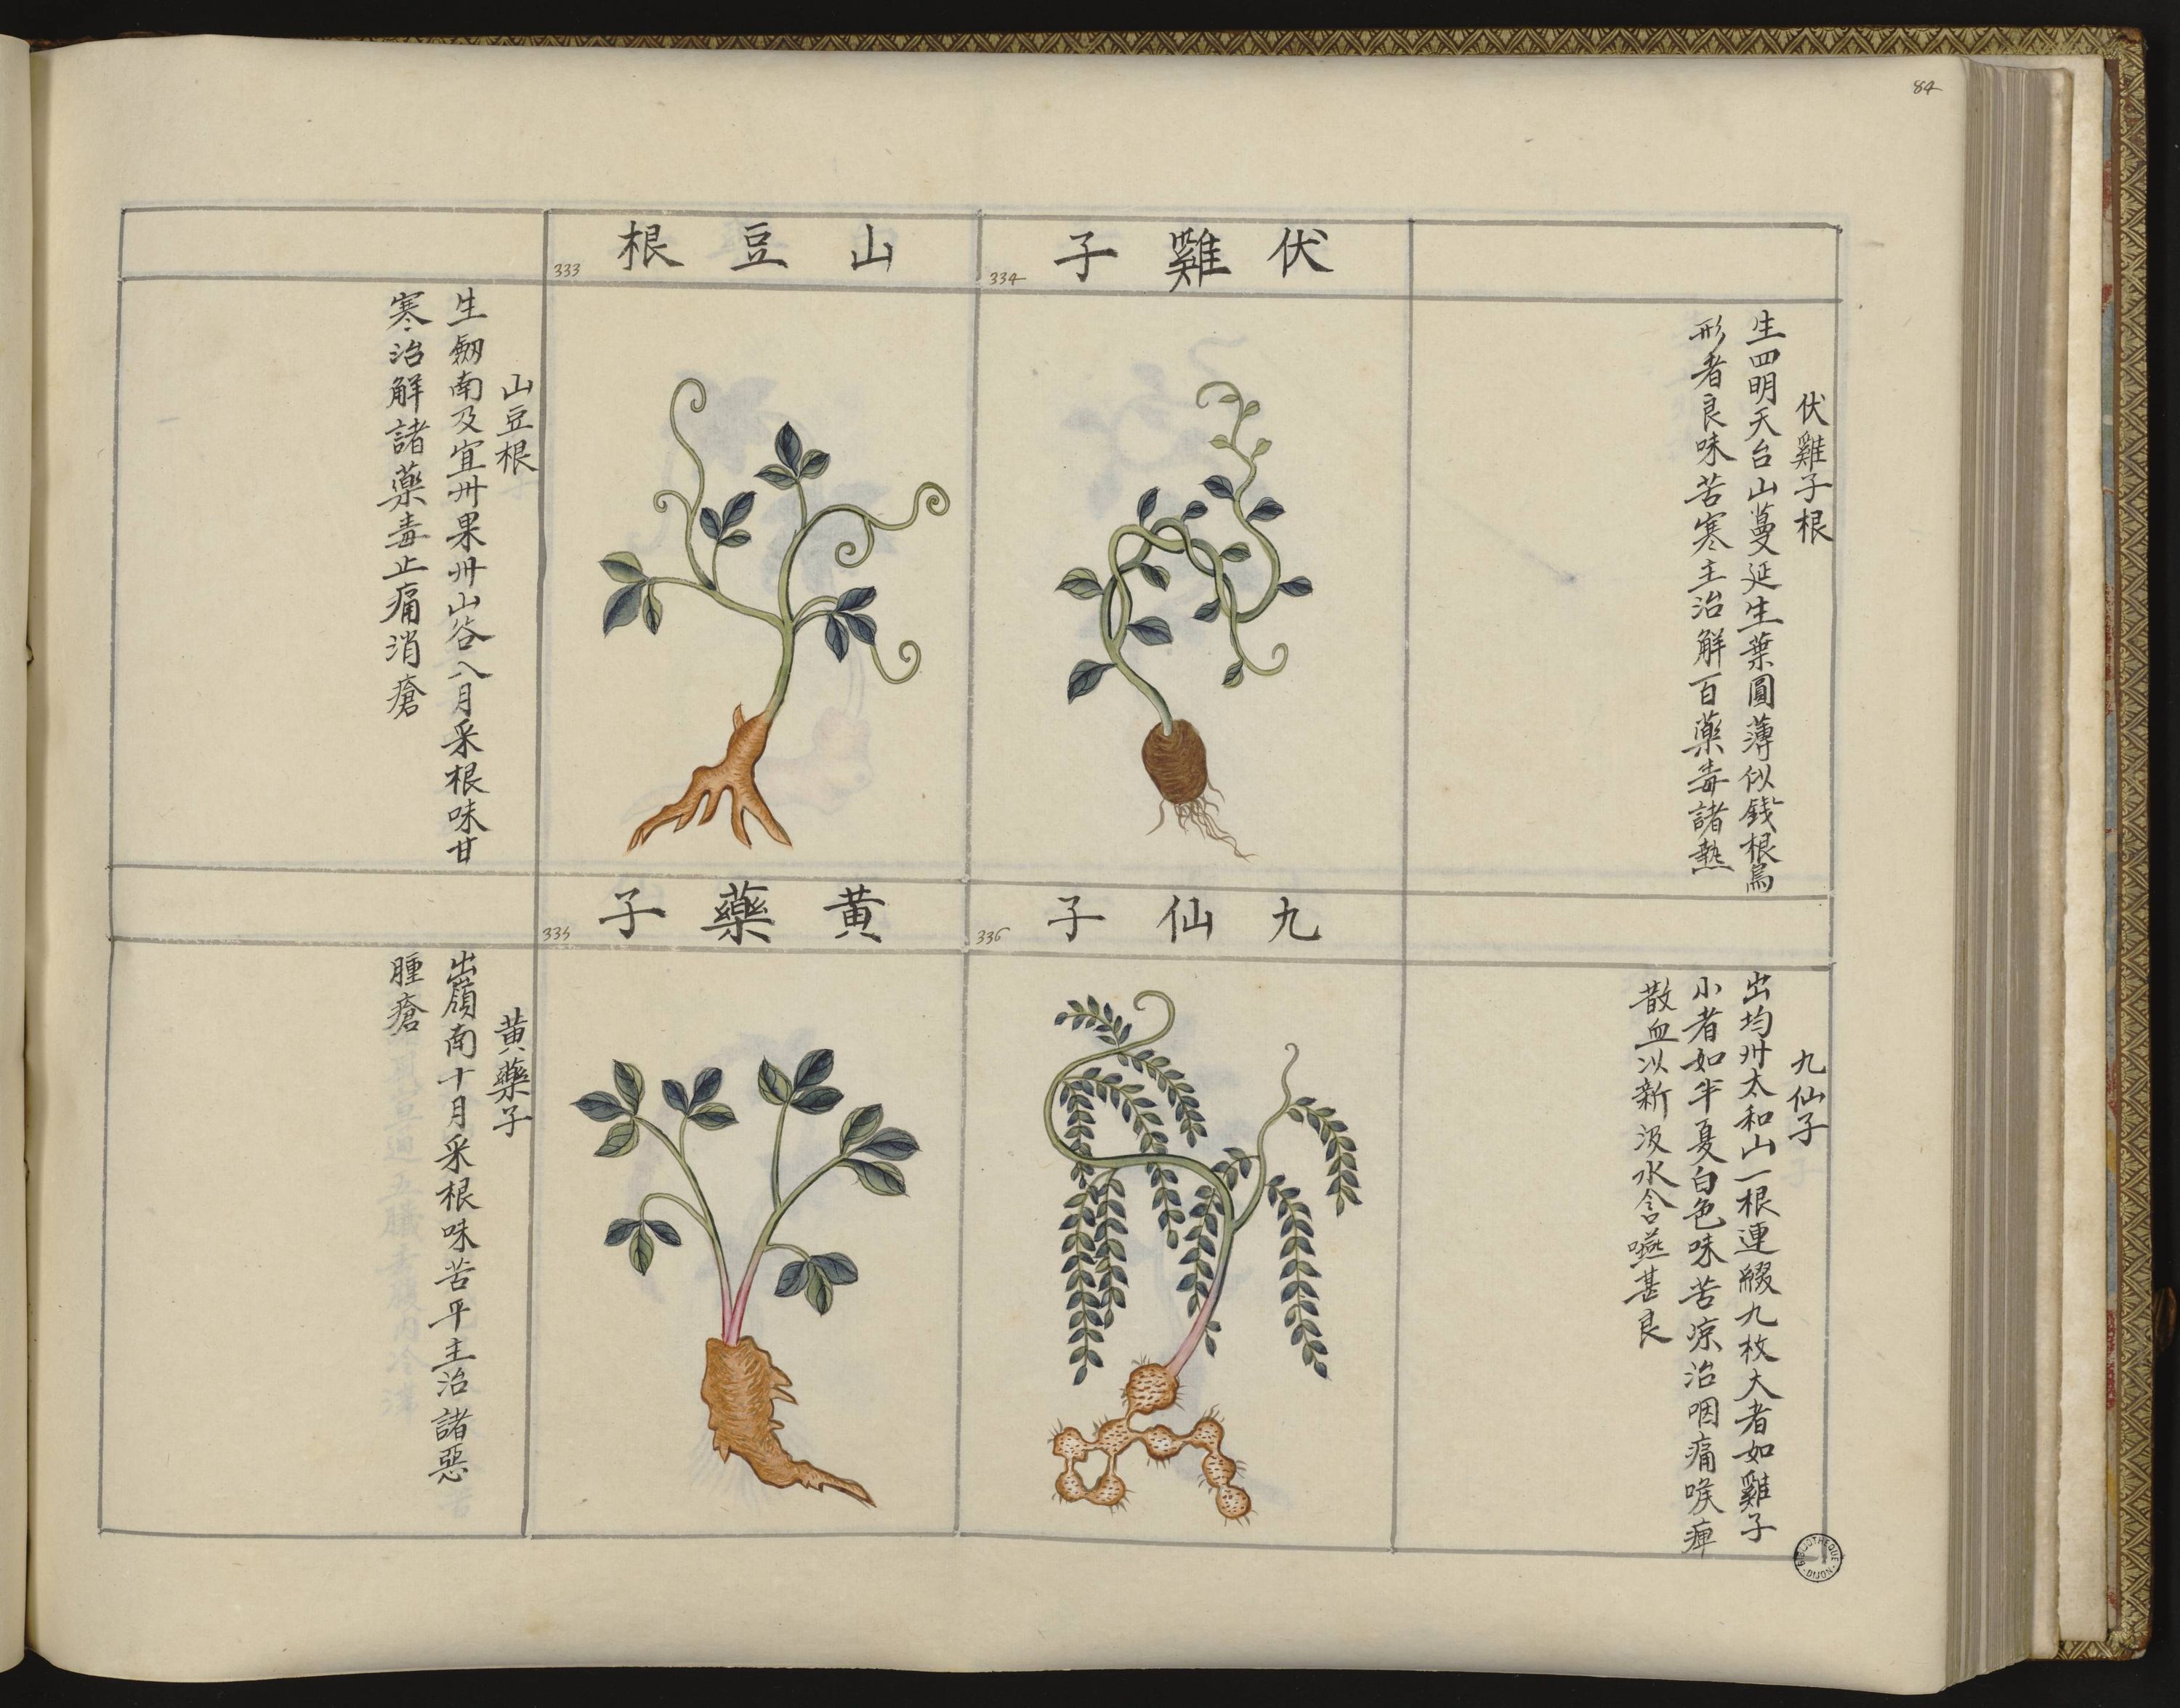 84
伏雞子
334
伏雞子根
生四明天台山蔓延生葉圓薄似錢根鳥
形者良味苦寒主治解百藥毒諸熱
山豆根
333
山豆根
生劒南及宜州果州山谷八月采根味甘
寒治解諸藥毒止痛消瘡
九仙子
336
九仙子
出均州太和山一根連綴九枚大者如雞子
小者如半夏白色味苦凉治咽痛喉痺
散血以新汲水含嚥甚良
黄藥子
335
黄藥子
出嶺南十月采根味苦平主治諸惡
腫瘡
BIBLIOTHEQUE DIJON